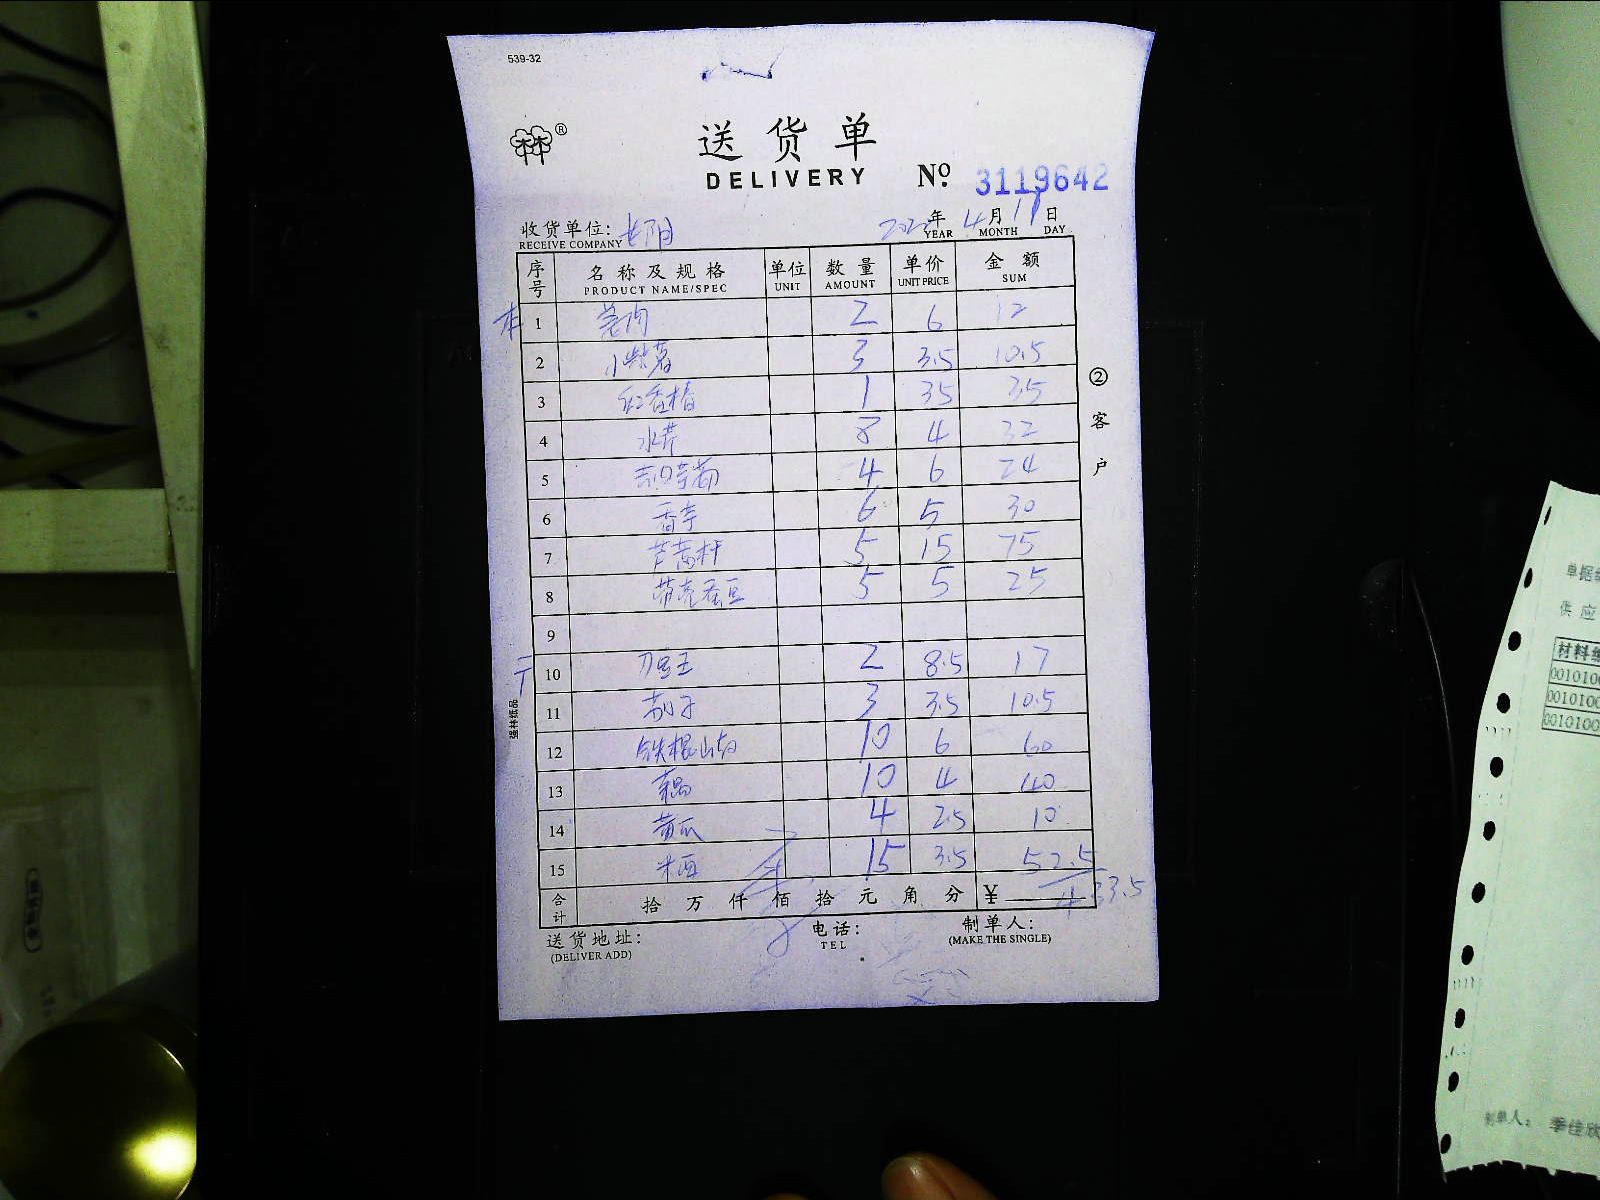 539-32
送货单
DELIVERY No. 3119642
收货单位:
RECEIVE COMPANY
年 4 月 11 日
YEAR MONTH DAY
序号 名称及规格 单位 数量 单价 金额
PRODUCT NAME/SPEC UNIT AMOUNT UNIT PRICE SUM
1 2 6 12
2 小紫薯 3 3.5 10.5
3 红香椿 1 35 35
4 水芹 8 4 32
5 4 6 24
6 香芋 6 5 30
7 芦蒿杆 5 15 75
8 带壳蚕豆 5 5 25
9
10 刀豆王 2 8.5 17
11 茄子 3 3.5 10.5
12 铁棍山药 10 6 60
13 藕 10 4 40
14 黄瓜 4 2.5 10
15 米面 15 3.5 52.5
合计 拾 万 仟 佰 拾 元 角 分 ¥ 433.5
送货地址:
(DELIVER ADD)
电话:
TEL
制单人:
(MAKE THE SINGLE)
② 客户
强林纸品
单据
供应
材料
001010
001010
001010
制单人: 季佳欣